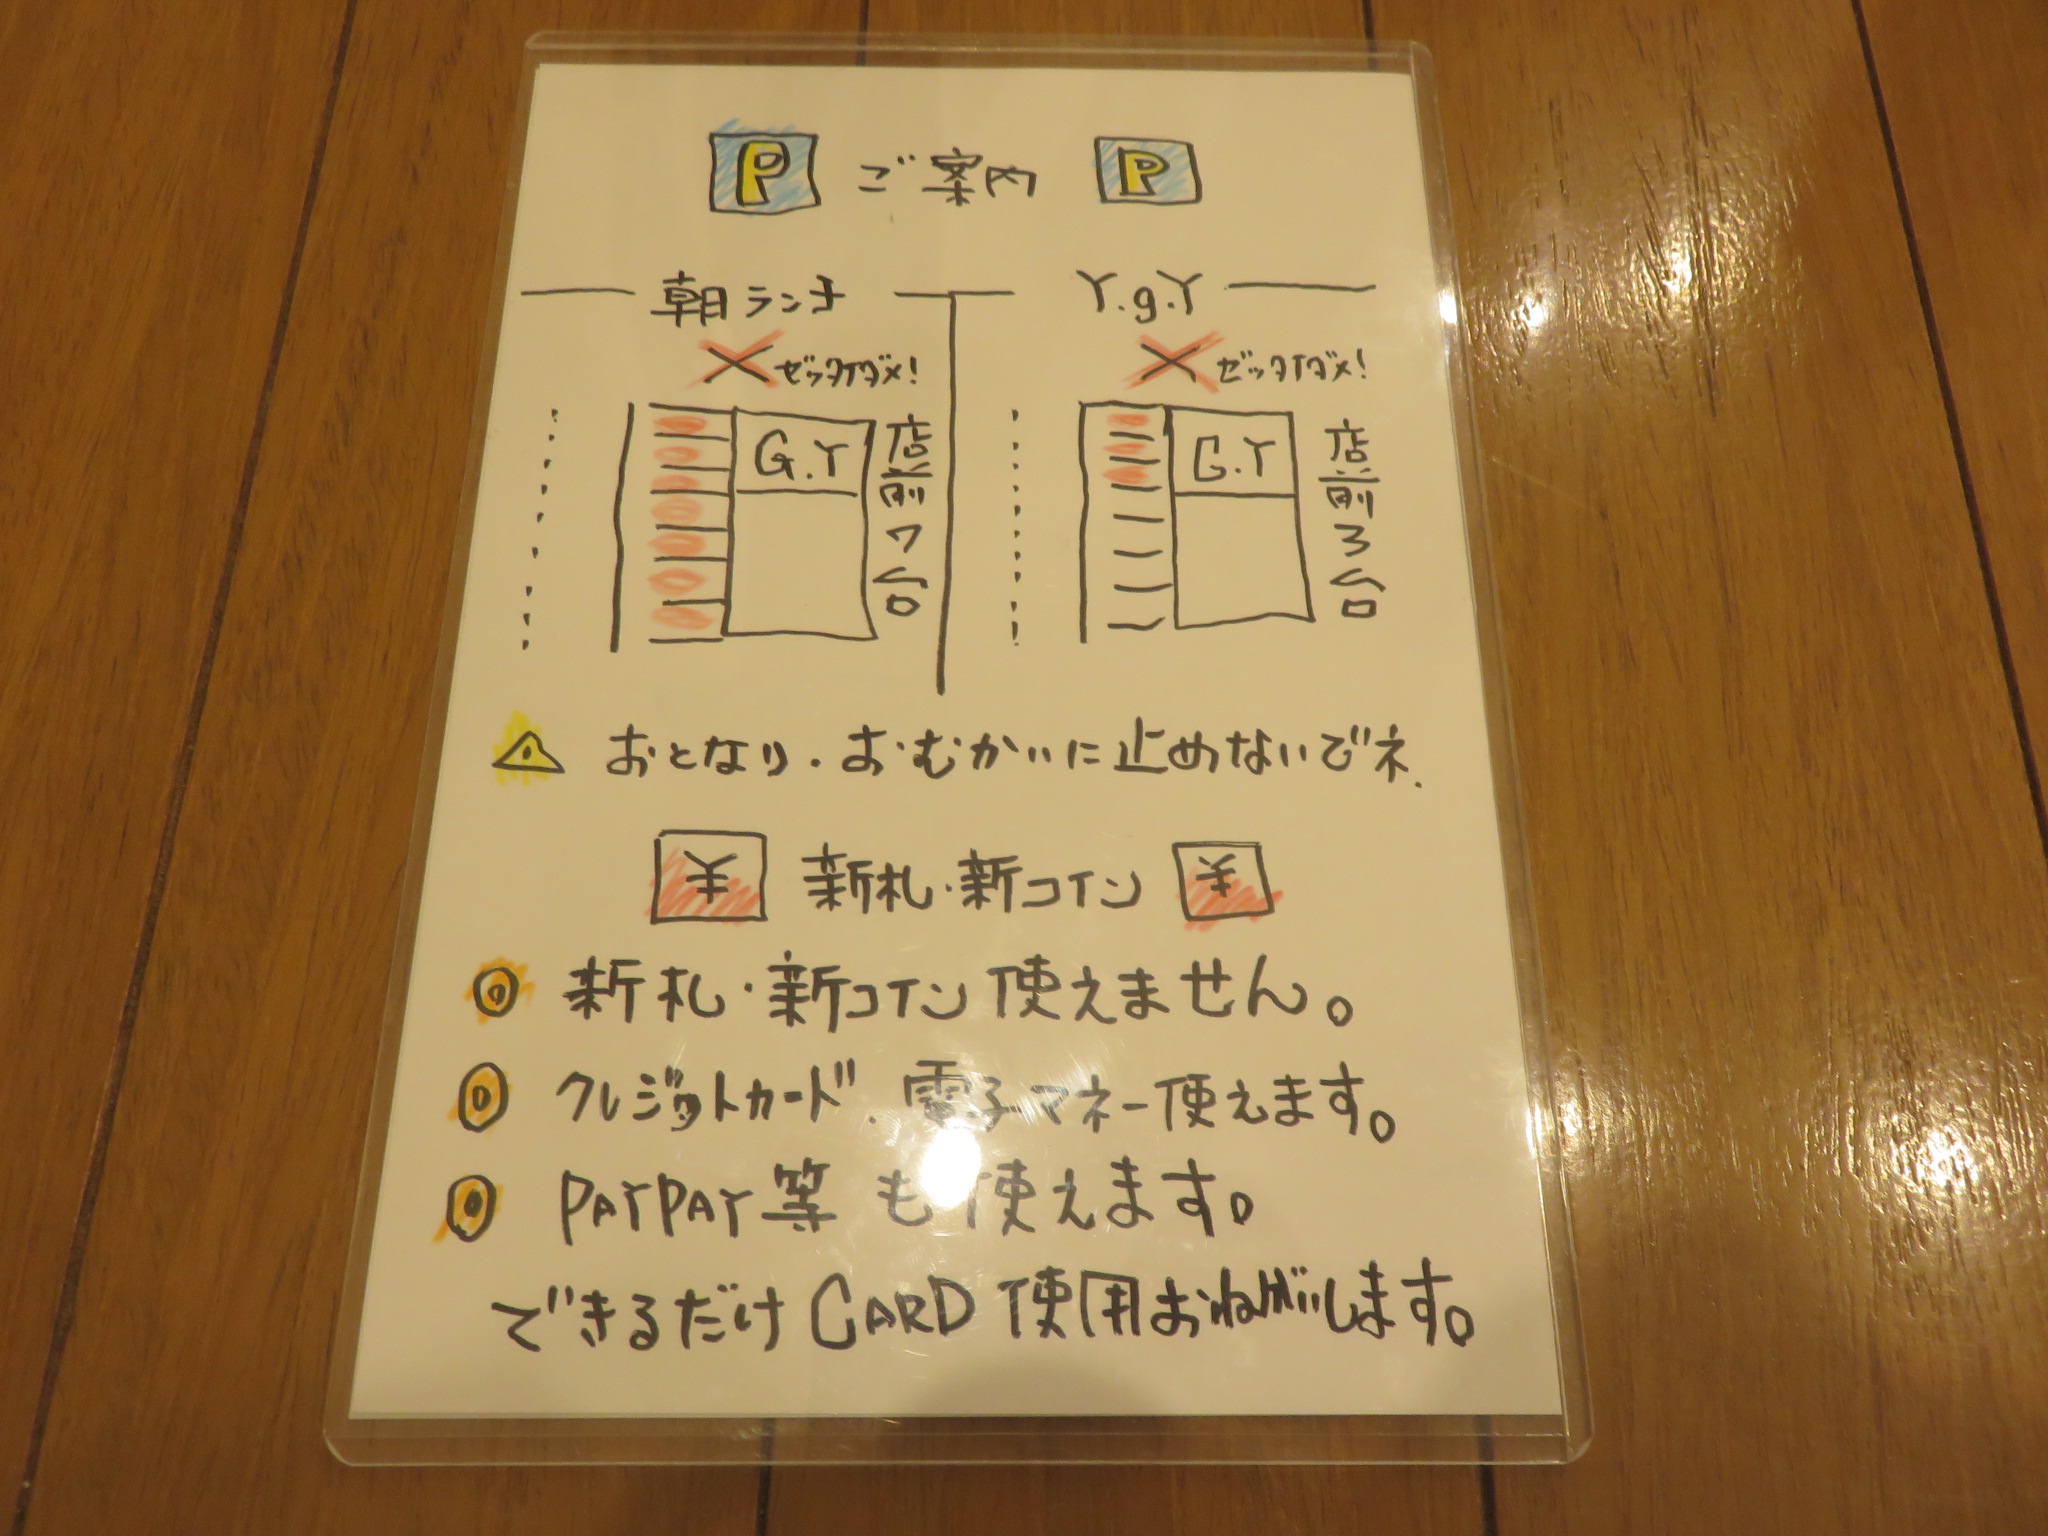 P ご案内 P
朝ランチ
ゼッタイダメ!
G.Y
店前7台
Y.g.Y
ゼッタイダメ!
G.Y
店前3台
おとなり・おむかいに止めないでネ.
¥ 新札・新コイン ¥
新札・新コイン使えません。
クレジットカード.電子マネー使えます。
PAYPAY等も使えます。
できるだけCARD使用おねがいします。